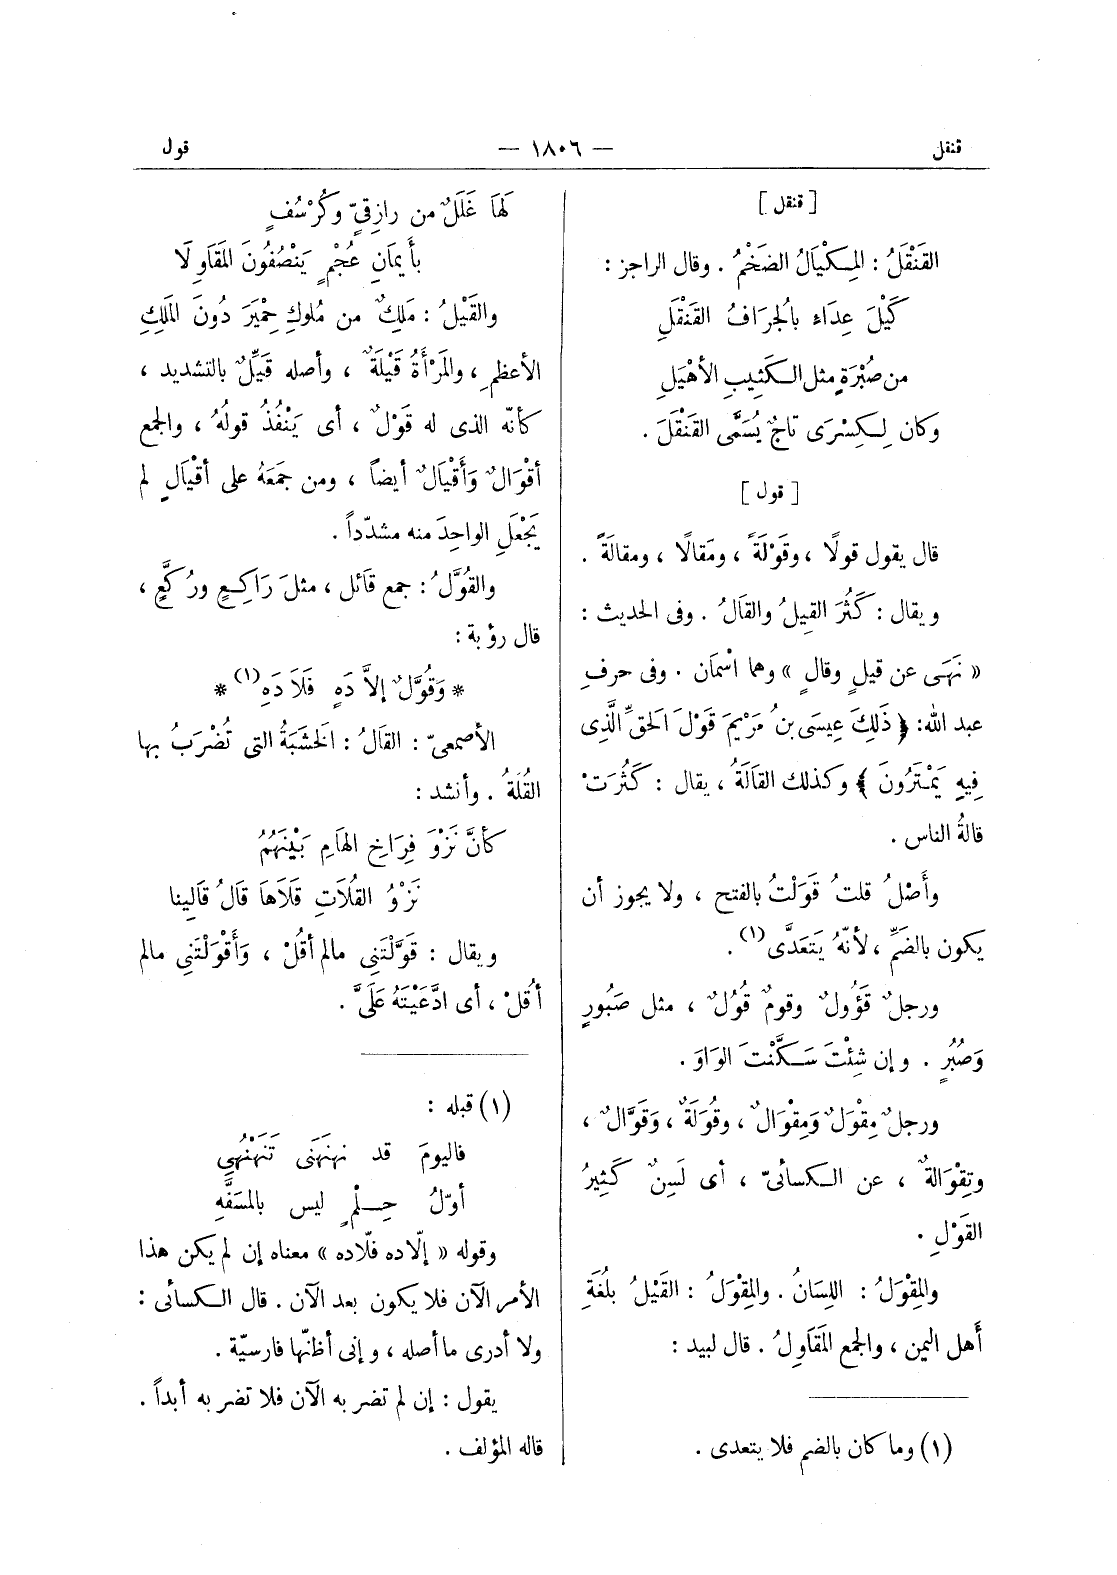 قنقل — ١٨٠٦ — قول
[ قنقل ]
القَنْقَلُ : المِكْيَالُ الضَخْمُ . وقال الراجز :
كَيْلَ عِدَاءِ بالْجرَافُ القَنْقَلِ
من صُبْرَةٍ مثل الكَثِيبِ الأهْيَلِ
وكان لِكِسْرَى تاجٌ يُسَمَّى القَنْقَلَ .
[ قول ]
قال يقول قولًا ، وقَوْلَةً ، ومَقالًا ، ومقالَةً .
ويقال : كَثُرَ القِيلُ والقَالُ . وفى الحديث :
« نَهَى عن قيلٍ وقالٍ » وهما اسْمَان . وفى حرفِ
عبد الله: ﴿ ذَلِكَ عِيسَى بنُ مَرْيَمَ قَوْلَ الحَقِّ الَّذِى
فِيهِ يَمْتَرُونَ ﴾ وكذلك القَالَةُ ، يقال : كَثُرَتْ
قالةُ الناس .
وأَصْلُ قلتُ قَوَلْتُ بالفتح ، ولا يجوز أن
يكون بالضَمِّ ، لأنّهُ يَتَعَدَّى (١) .
ورجلٌ قَؤُولٌ وقومٌ قُوُلٌ ، مثل صَبُورٍ
وَصُبُرٍ . وإن شِئْتَ سَكَّنْتَ الوَاوَ .
ورجلٌ مِقْوَلٌ وَمِقْوَالٌ ، وقُوَلَةٌ ، وَقَوَّالٌ ،
وتِقْوَالةٌ ، عن الكسائىّ ، أى لَسِنٌ كَثِيرُ
القَوْلِ .
والمِقْوَلُ : اللِسَانُ . والمِقْوَلُ : القَيْلُ بلُغَةِ
أَهل اليمن ، والجمع المَقَاوِلُ . قال لبيد :
(١) وما كان بالضم فلا يتعدى .
لَهَا غَلَلٌ من رازِقىٍّ وكُرْسُفٍ
بأَيمَانِ عُجْمٍ يَنْصُفُونَ المَقَاوِلَا
والقَيْلُ : مَلِكٌ من مُلوكِ حِمْيَرَ دُونَ المَلِكِ
الأعظمِ ، والمَرْأَةُ قَيْلَةٌ ، وأصله قَيِّلٌ بالتشديد ،
كأنّه الذى له قَوْلٌ ، أى يَنْفُذُ قولُهُ ، والجمع
أقْوَالٌ وَأَقْيَالٌ أيضاً ، ومن جَمَعَهُ على أقْيَالٍ لم
يَجْعَلِ الواحِدَ منه مشدّداً .
والقُوَّلُ : جمع قَائل ، مثلَ رَاكِعٍ ورُكَّعٍ ،
قال رؤبة :
* وَقُوَّلٌ إلاَّ دَهٍ فَلَا دَهِ (١) *
الأصمعىّ : القَالُ : الخشَبَةُ التى تُضْرَبُ بها
القُلَةُ . وأنشد :
كَأنَّ نَزْوَ فِرَاخِ الهَامِ بَيْنَهُمُ
نَزْوُ القُلَاتِ قَلَاهَا قَالُ قَالِينا
ويقال : قَوَّلْتَنِى مالم أقُلْ ، وَأَقْوَلْتَنِى مالم
أقُلْ ، أى ادَّعَيْتَهُ عَلَىَّ .
(١) قبله :
فاليومَ قد نهنَهَنى تَنَهْنُهِى
أوّلُ حِلْمٍ ليس بالمسَفَّهِ
وقوله « إلّاده فلّاده » معناه إن لم يكن هذا
الأمر الآن فلا يكون بعد الآن . قال الكسائى :
ولا أدرى ما أصله ، وإنى أظنّها فارسيّة .
يقول : إن لم تضربه الآن فلا تضربه أبداً .
قاله المؤلف .